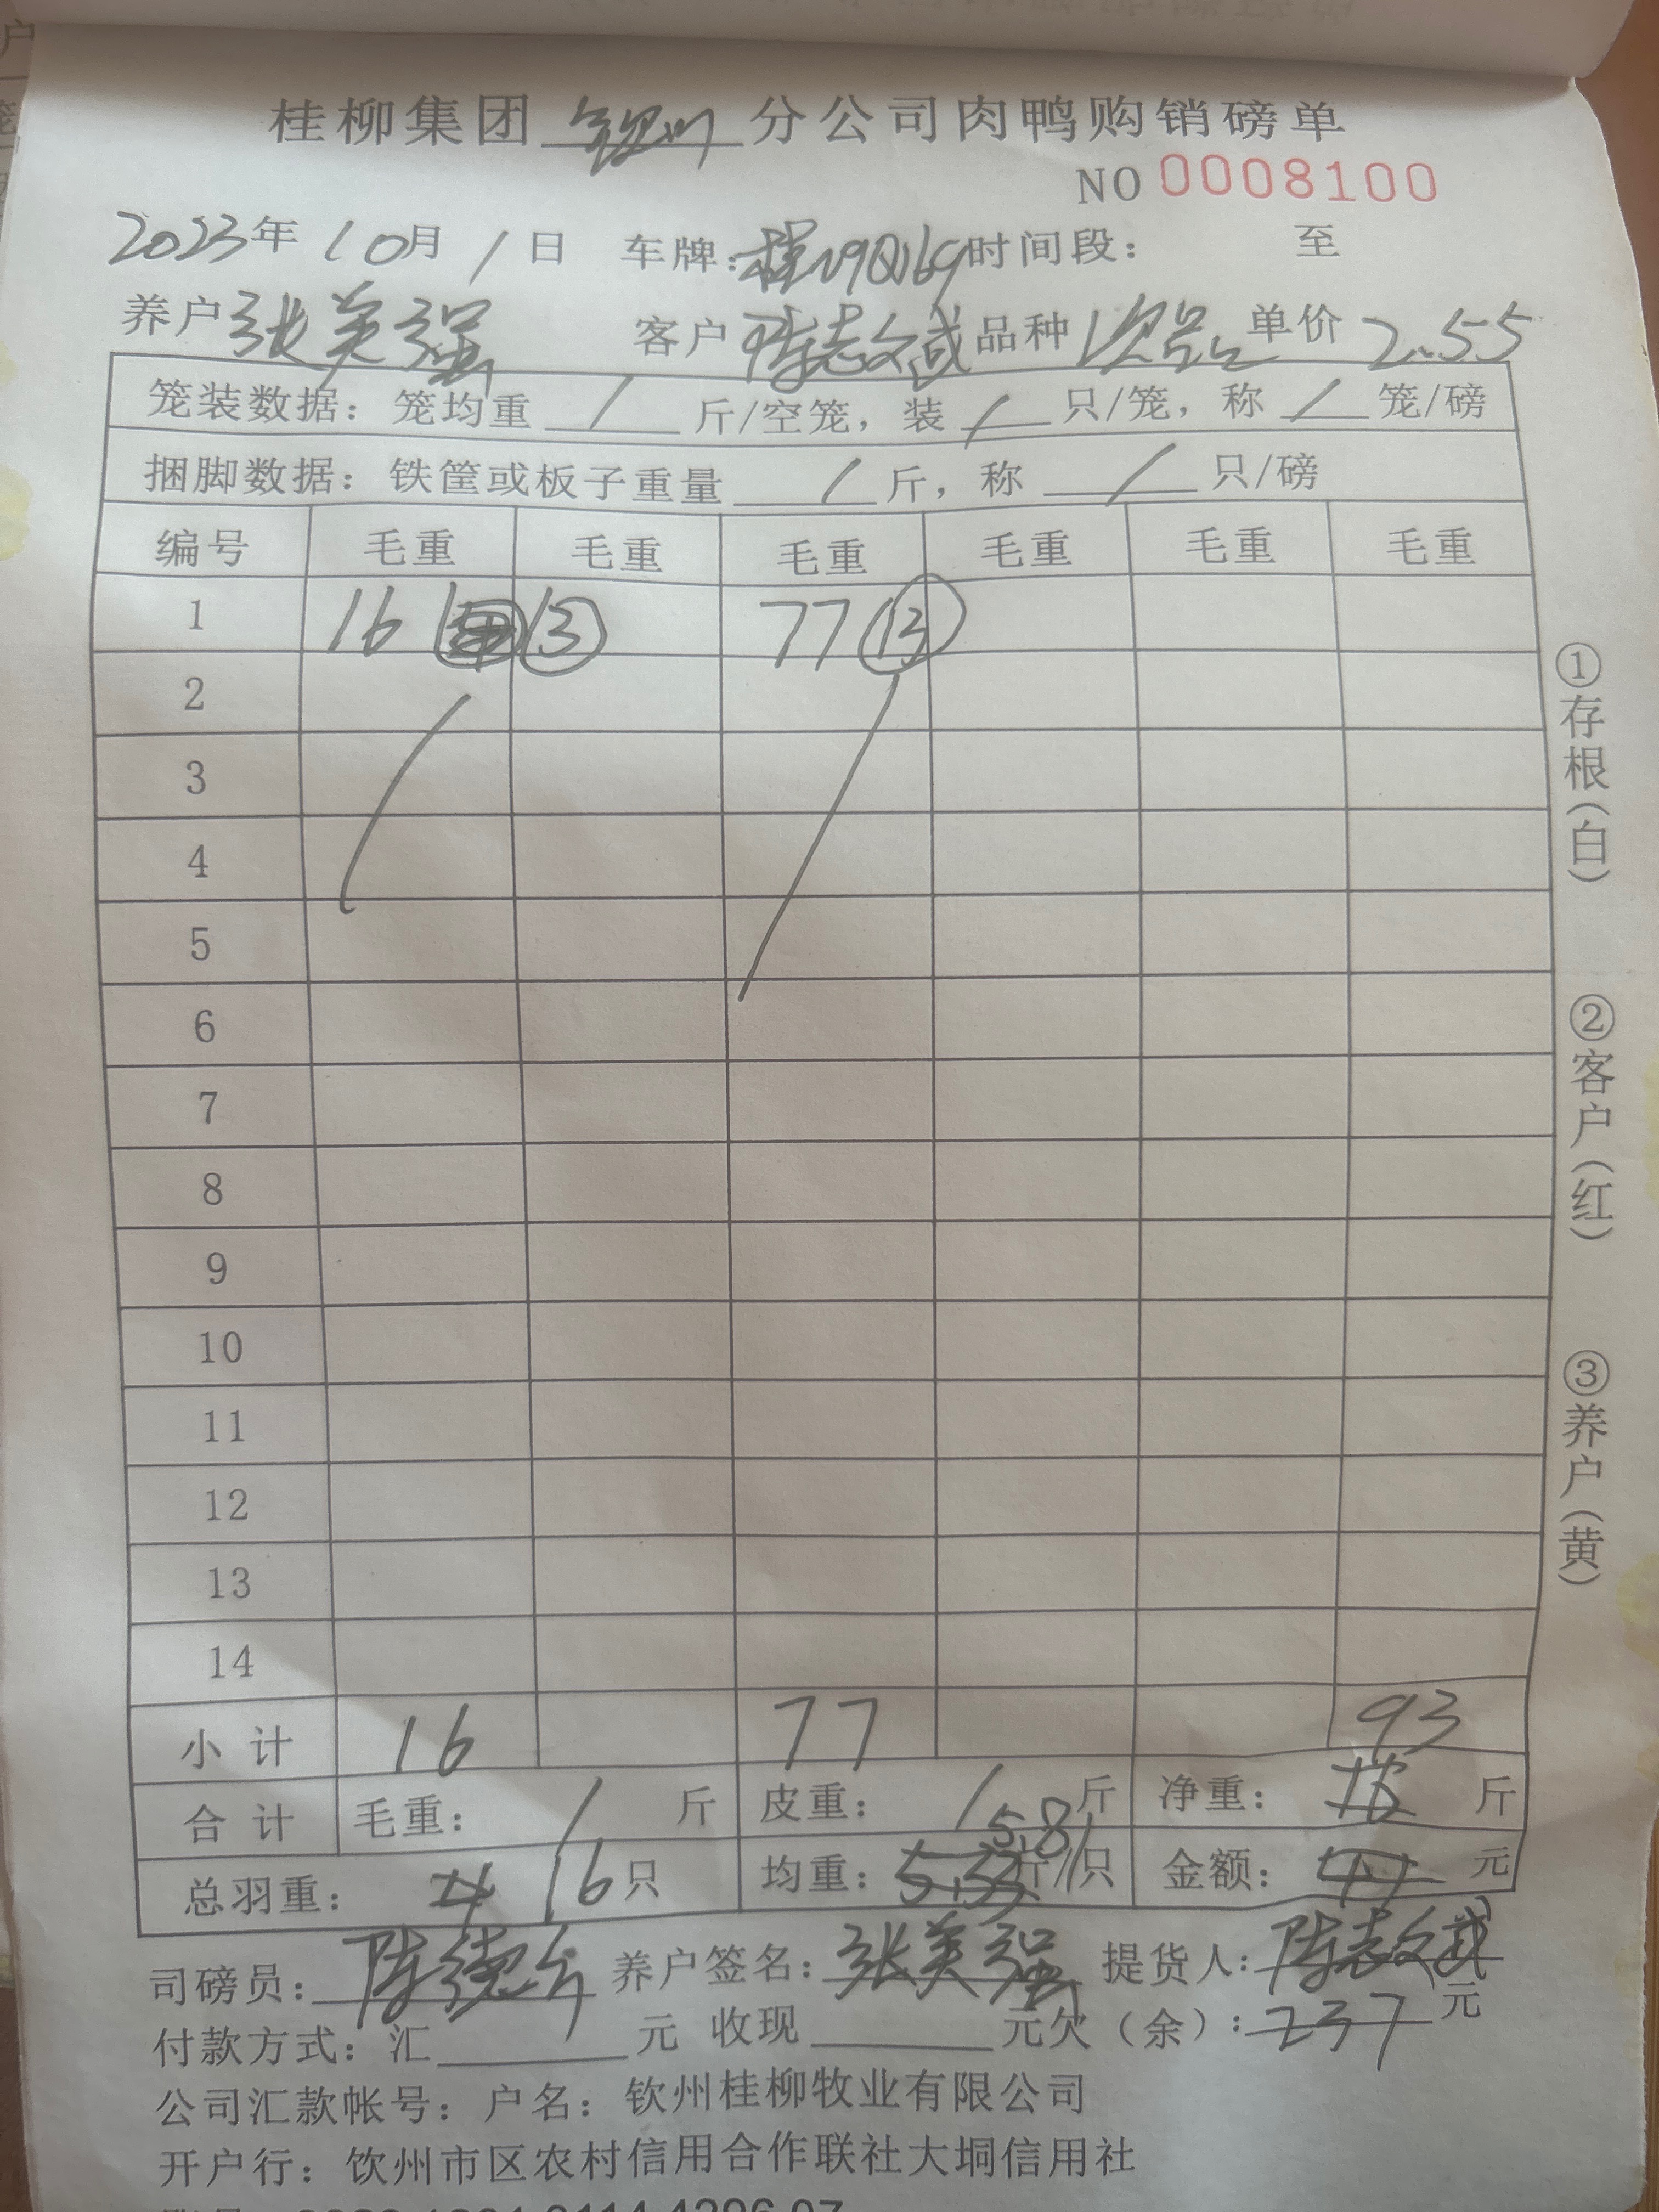 桂柳集团 钦州 分公司肉鸭购销磅单
NO 0008100
2023年 10月 1日 车牌: 桂N9Q169 时间段: 至
养户 张美强 客户 陈志斌 品种 次品 单价 2.55
笼装数据: 笼均重 / 斤/空笼, 装 / 只/笼, 称 / 笼/磅
捆脚数据: 铁筐或板子重量 / 斤, 称 / 只/磅
编号 毛重 毛重 毛重 毛重 毛重 毛重
1 16 13 77 13
2
3
4
5
6
7
8
9
10
11
12
13
14
小计 16 77 93
合计 毛重: / 斤 皮重: / 斤 净重: 斤
总羽重: 16只 均重: 5.81 斤/只 金额: 元
司磅员: 陈德 养户签名: 张美强 提货人: 陈志斌
付款方式: 汇 元 收现 元欠(余): 237 元
公司汇款帐号: 户名: 钦州桂柳牧业有限公司
开户行: 钦州市区农村信用合作联社大垌信用社
①存根(白)
②客户(红)
③养户(黄)